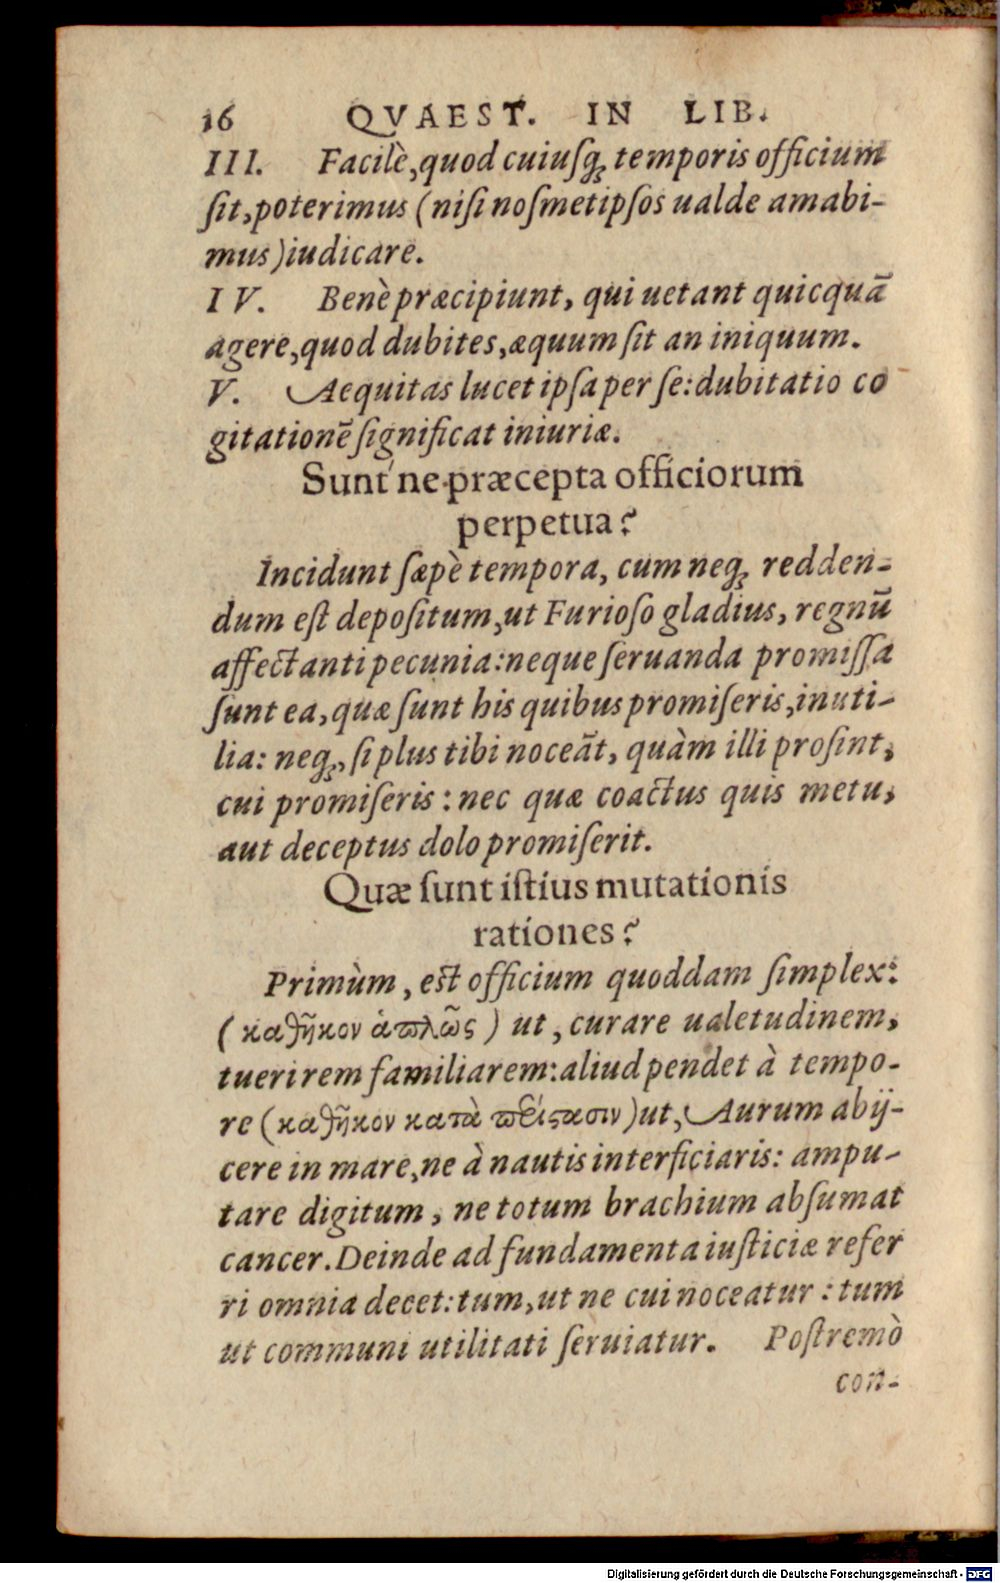 16 QVAEST. IN LIB.
III. Facilè, quod cuiuſqꝫ temporis officium
ſit, poterimus (niſi noſmetipſos ualde amabi-
mus) iudicare.
IV. Benè præcipiunt, qui uetant quicquā
agere, quod dubites, æquum ſit an iniquum.
V. Aequitas lucet ipſa per ſe: dubitatio co
gitationē ſignificat iniuriæ.
Sunt'ne præcepta officiorum
perpetua?
Incidunt ſæpè tempora, cum neqꝫ redden-
dum eſt depoſitum, ut Furioſo gladius, regnū
affectanti pecunia: neque ſeruanda promiſſa
ſunt ea, quæ ſunt his quibus promiſeris, inuti-
lia: neqꝫ, ſi plus tibi noceāt, quàm illi proſint,
cui promiſeris: nec quæ coactus quis metu,
aut deceptus dolo promiſerit.
Quæ ſunt iſtius mutationis
rationes?
Primùm, eſt officium quoddam ſimplex:
(καθῆκον ἁπλῶς) ut, curare ualetudinem,
tueri rem familiarem: aliud pendet à tempo-
re (καθῆκον κατὰ πείςασιν) ut, Aurum abij-
cere in mare, ne à nautis interficiaris: ampu-
tare digitum, ne totum brachium abſumat
cancer. Deinde ad fundamenta iuſticiæ refer
ri omnia decet: tum, ut ne cui noceatur: tum
ut communi utilitati ſeruiatur. Poſtremò
con-
Digitalisierung gefördert durch die Deutsche Forschungsgemeinschaft - DFG